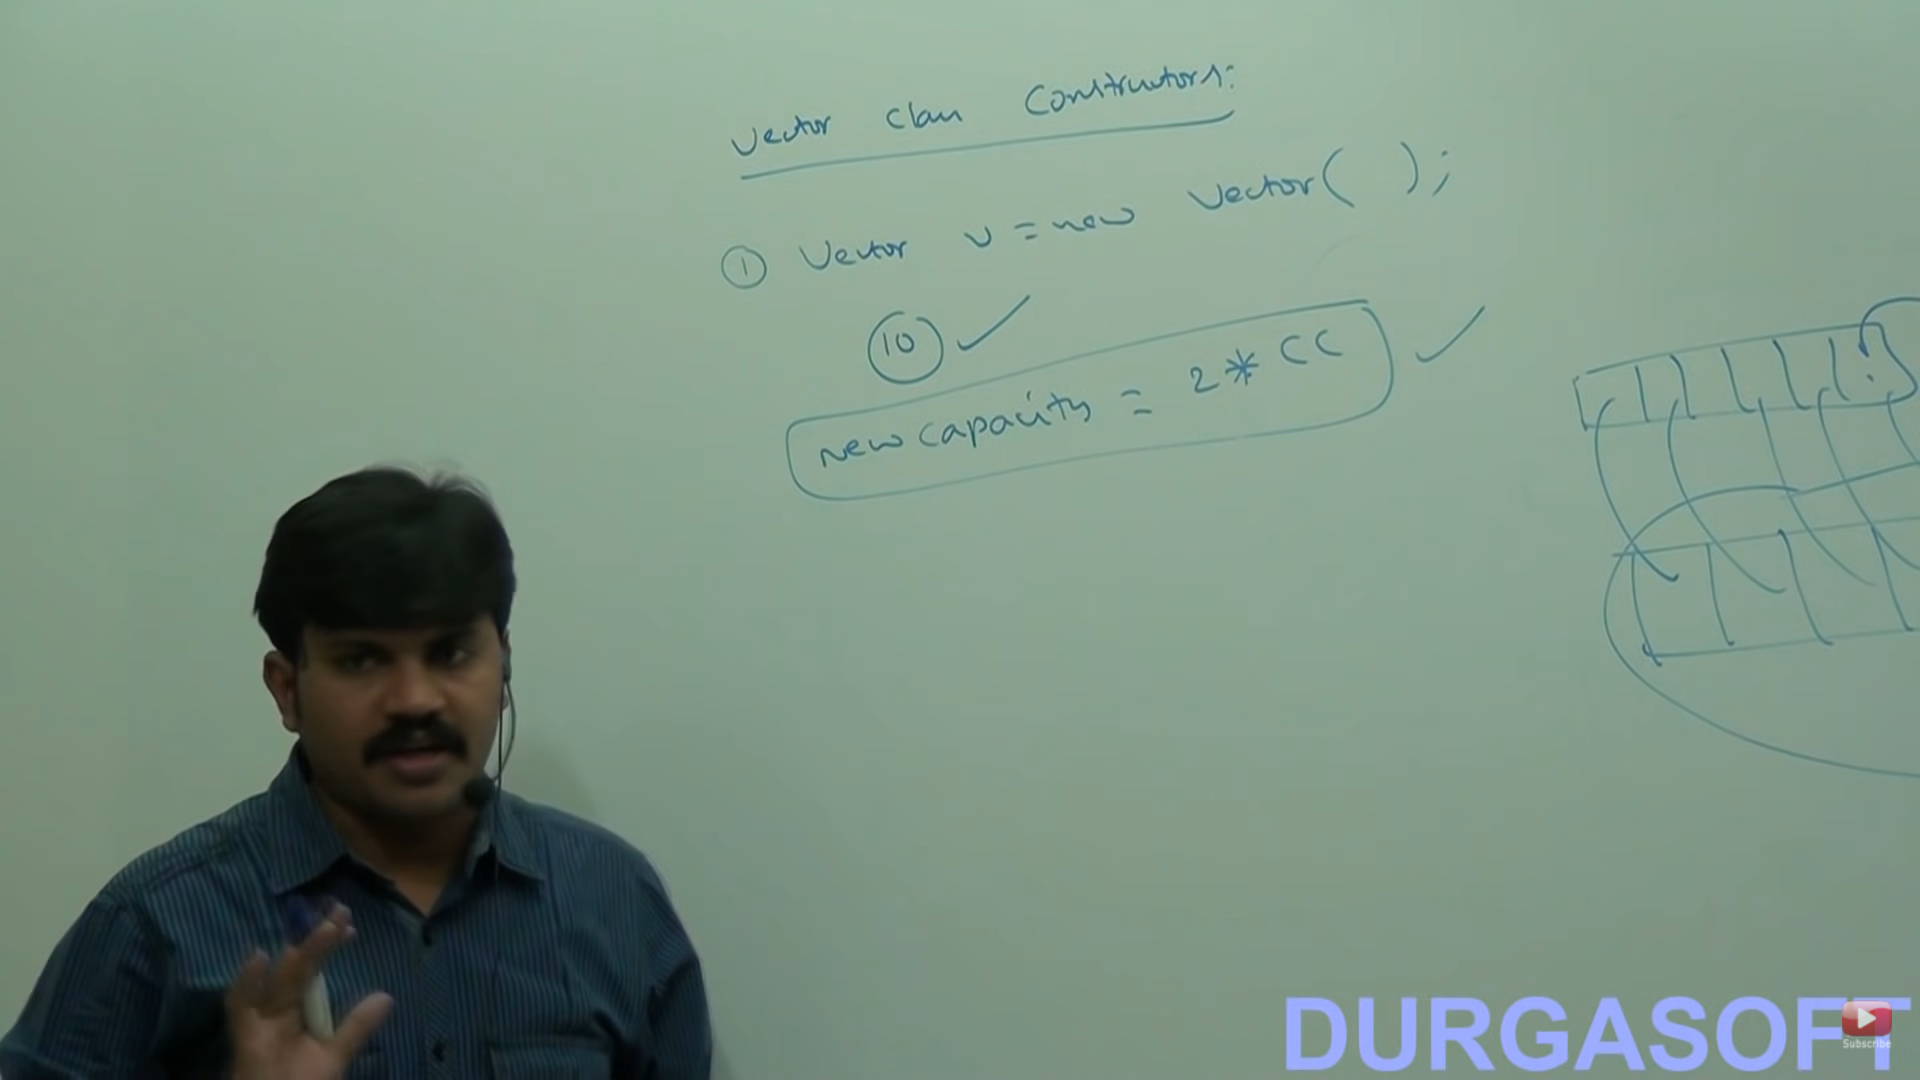 Vector Class Constructors:
① Vector v = new Vector( );
10
new capacity = 2 * CC
DURGASOFT
Subscribe